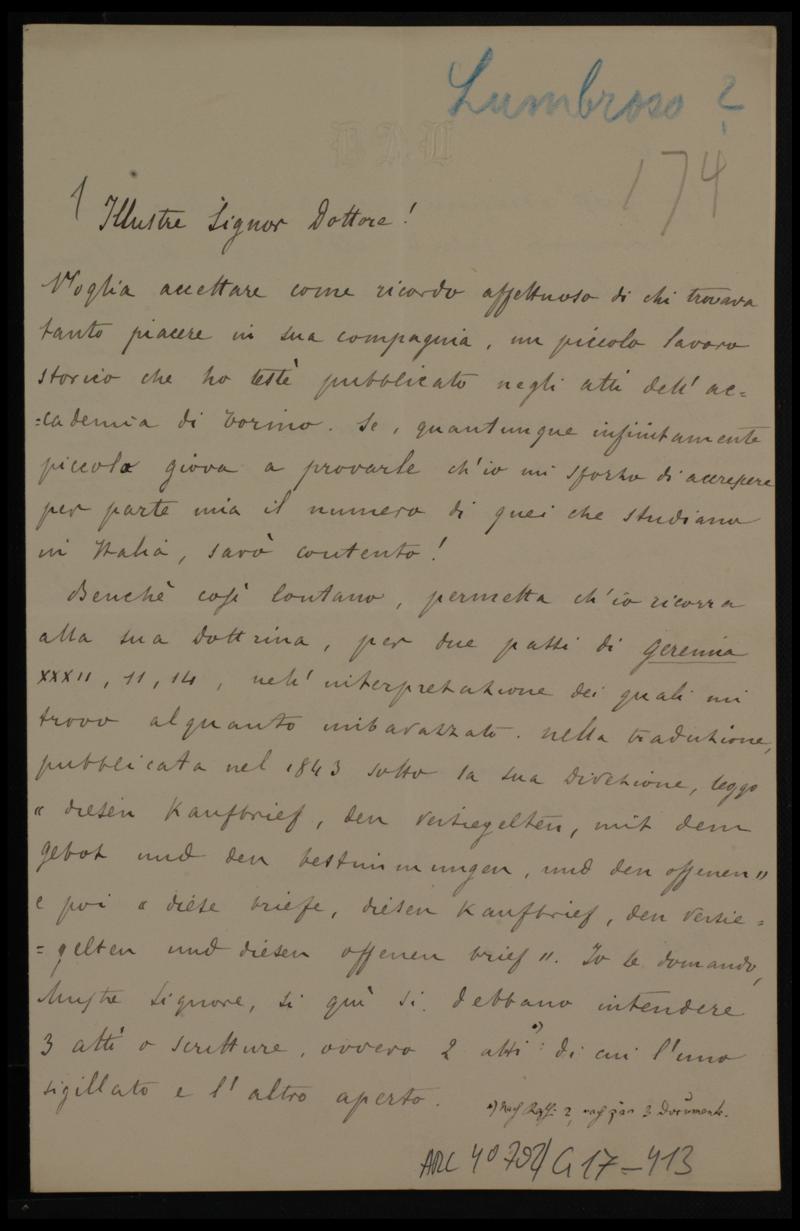 Lumbroso ?
174
Illustre Signor Dottore!
Voglia accettare come ricordo affettuoso di chi trovava
tanto piacere in sua compagnia, un piccolo lavoro
storico che ho testè pubblicato negli atti dell' ac=
=cademia di Torino. Se, quantunque infinitamente
piccolo giova a provarle ch'io mi sforzo di accrescere
per parte mia il numero di quei che studiano
in Italia, sarò contento!
Benchè così lontano, permetta ch'io ricorra
alla sua dottrina, per due passi di Geremia
XXXII, 11, 14, nell' interpretazione dei quali mi
trovo alquanto imbarazzato. nella traduzione,
pubblicata nel 1843 sotto la sua direzione, leggo
" diesen Kaufbrief, den versiegelten, mit dem
gebot und den bestimmungen, und den offenen "
e poi " diese briefe, diesen Kaufbrief, den versie=
=gelten und diesen offenen brief ". Io le domando,
Illustre Signore, se quì si debbano intendere
3 atti o scritture, ovvero 2 atti *) di cui l'uno
sigillato e l'altro aperto.
*) Nach 2, nach 3 Documente.
ARC 4° 792/G17-413